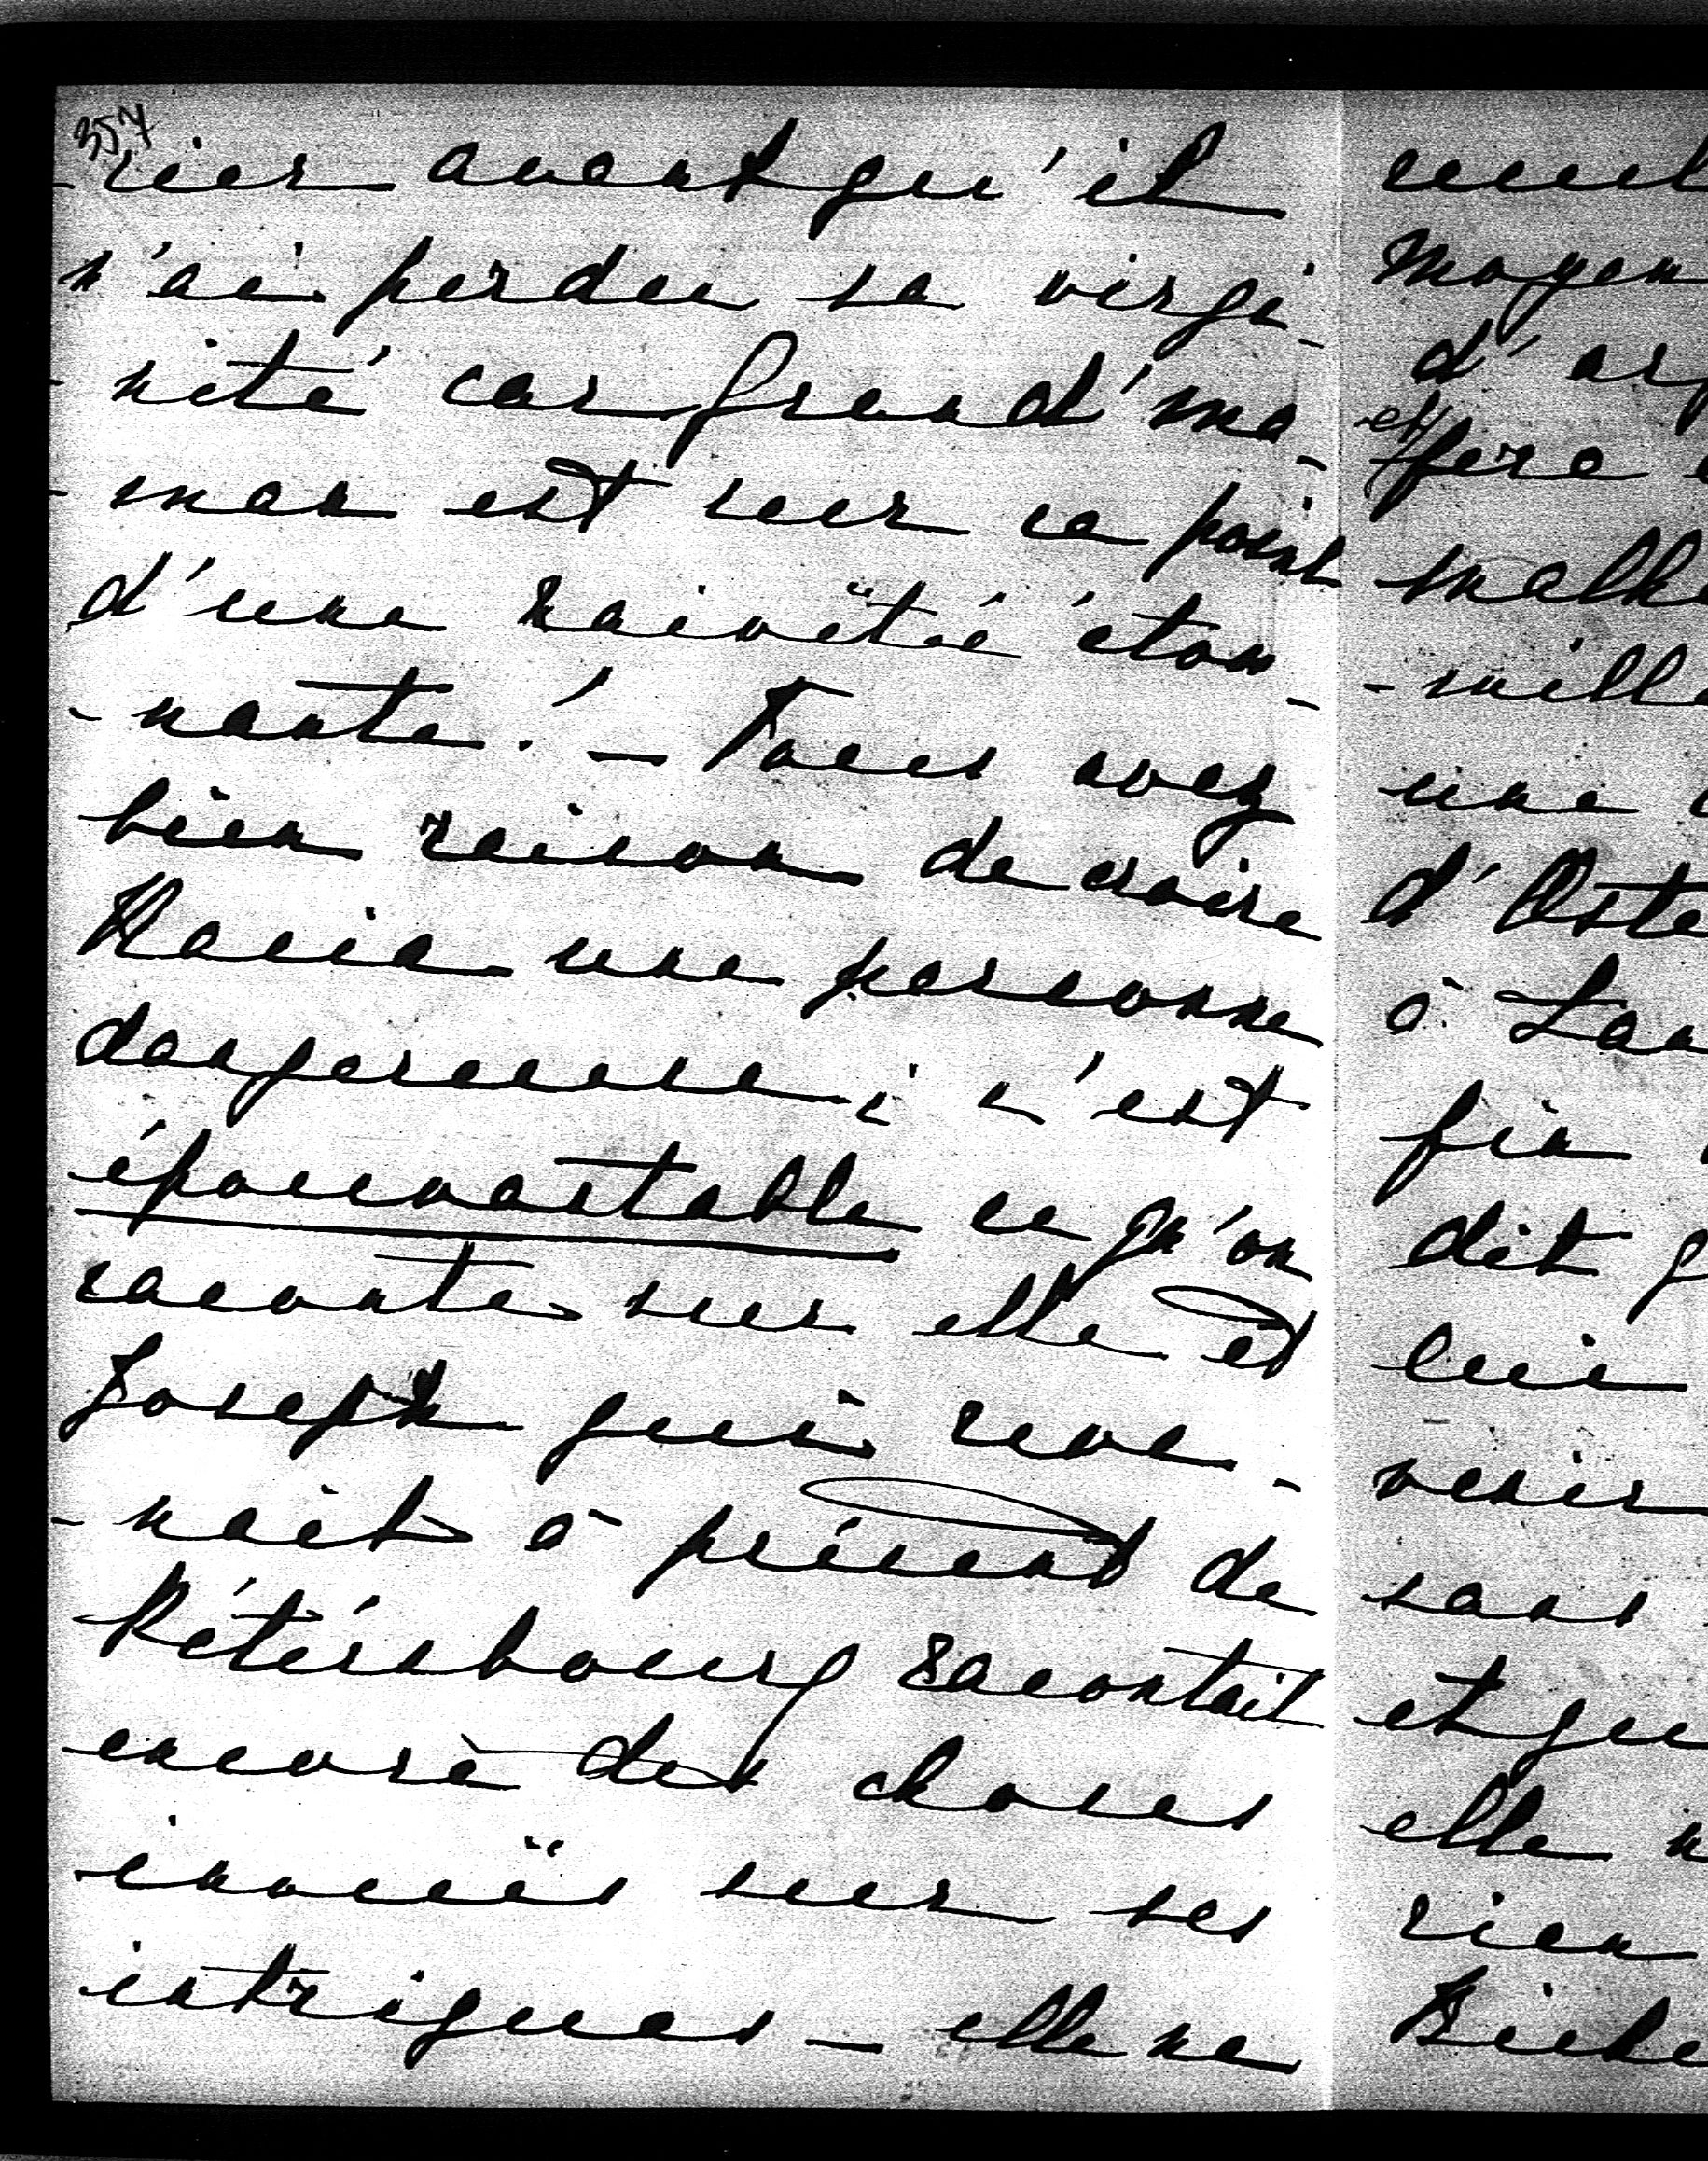 357
-rier avant qu'il
n'ai perdu sa virgi-
-nité car Grand'ma-
-man est sur ce point
d'une naïvété éton-
-nante! - Tous avez
bien raison de croire
Maria une personne
dangereuse; c'est
épouvantable ce qu'on
raconte sur elle et
Joseph qui reve-
-nait à présent de
Pétérsbourg racontait
encore des choses
inouïes sur ses
intrigues - elle ne
moyen
d'arg
et fera
malh
- mill
une
d'Oste
à Lon
fin
dit q
lui
venir
sans
et que
elle n
rien